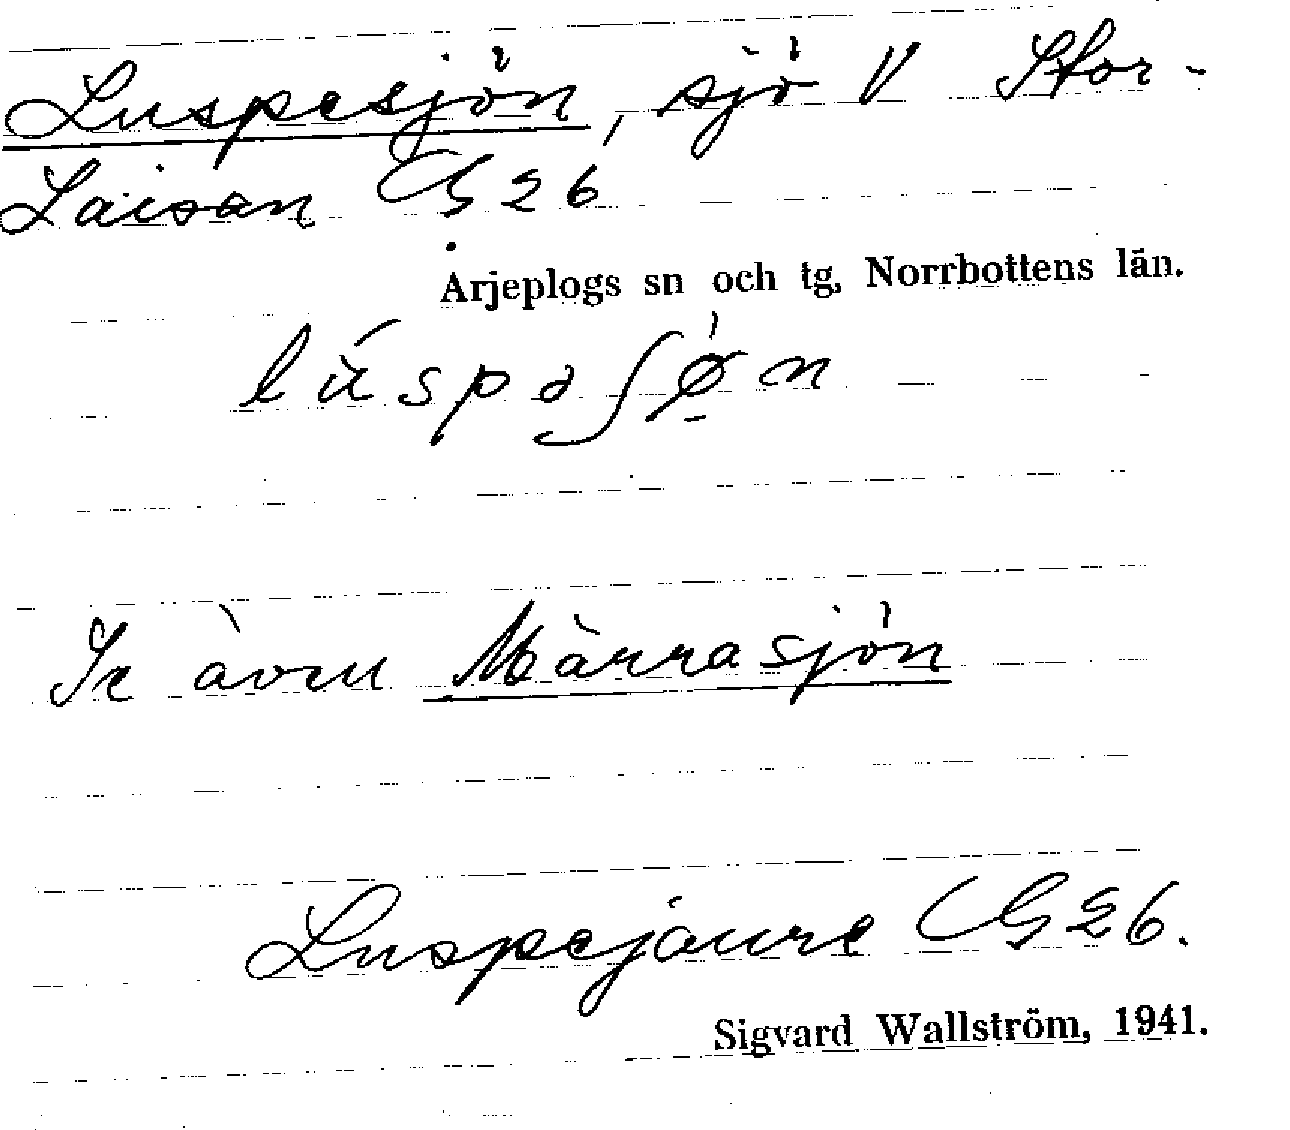 Luspesjön, sjö V Stor-
Laisan G 26
Arjeplogs sn och tg, Norrbottens län.
lu̇́spəʃø̠n
Se även Märrasjön
Luspejaure G 26.
Sigvard Wallström, 1941.